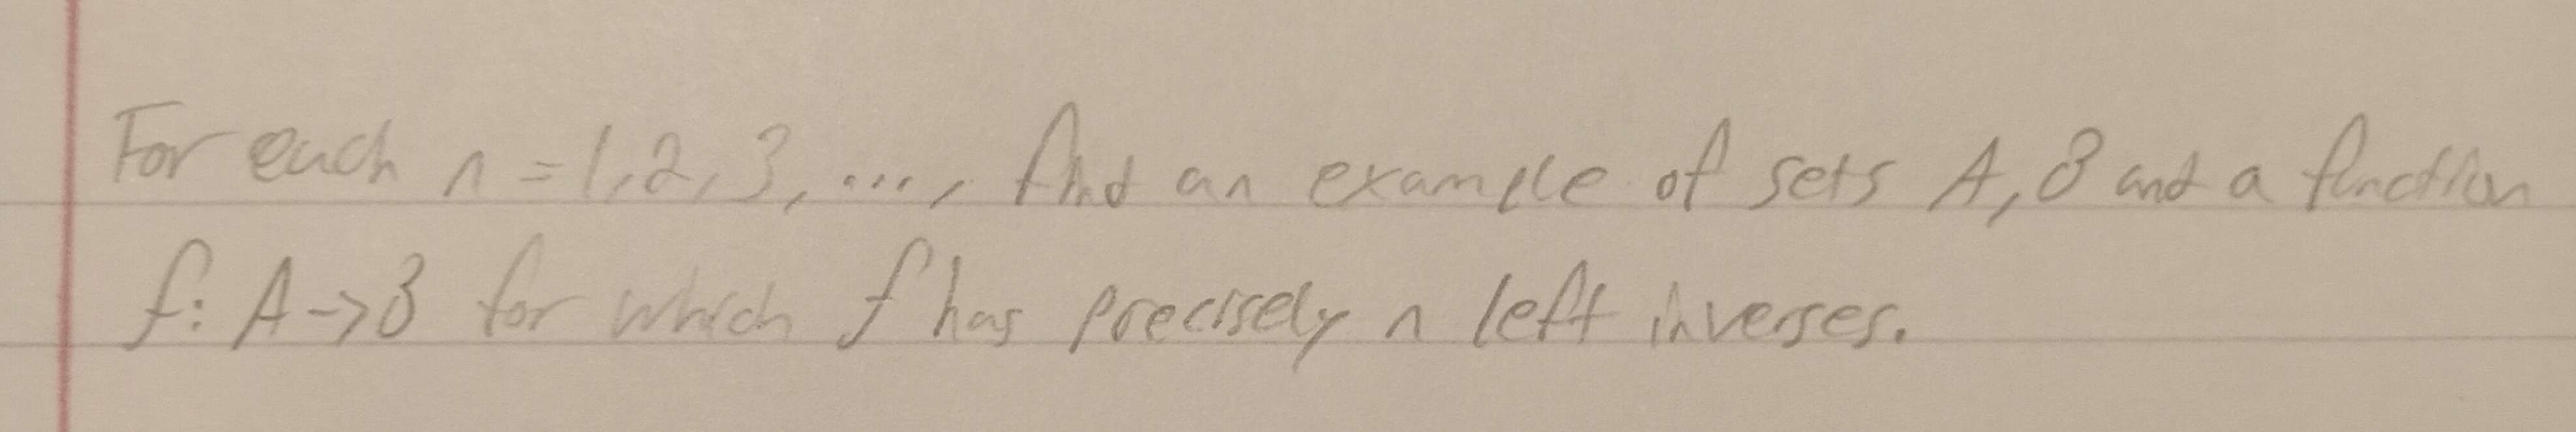 For each n = 1, 2, 3, ..., find an example of sets A, B and a function
f: A -> B for which f has precisely n left inverses.